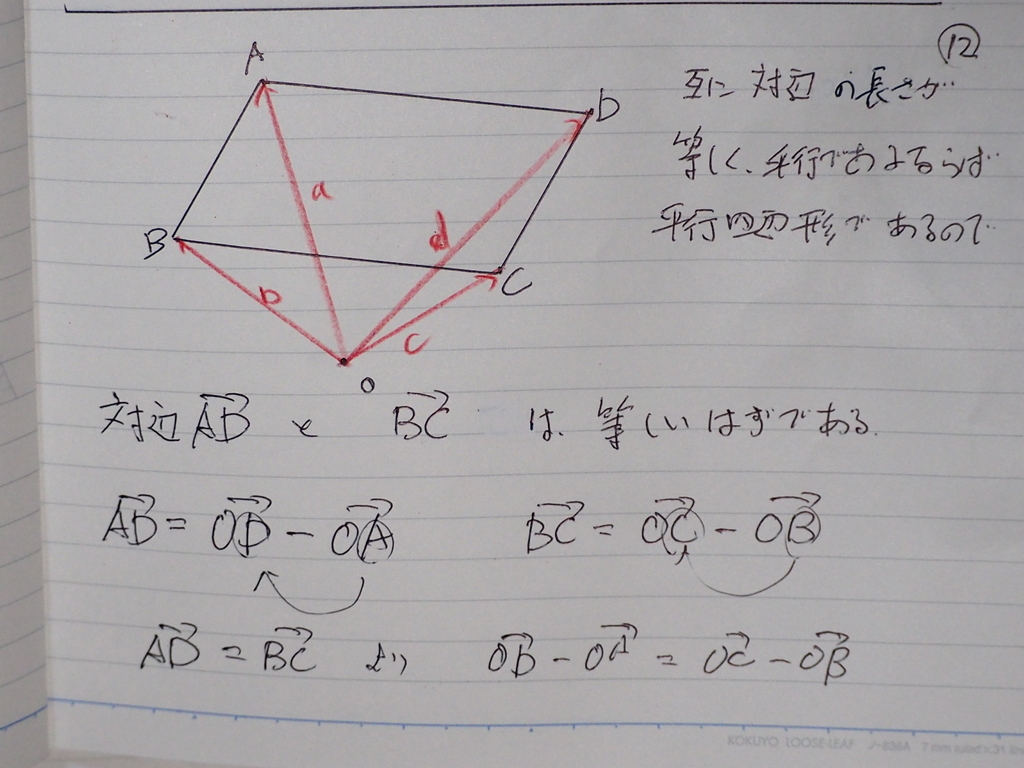 ⑫
A
D
B
C
a
b
c
d
o
互に対辺の長さが
等しく、平行であるならば
平行四辺形であるので
対辺 AD と BC は、等しいはずである。
AD = OD - OA BC = OC - OB
AD = BC より OD - OA = OC - OB
KOKUYO LOOSE-LEAF ノ-836A 7 mm ruled×31 lines